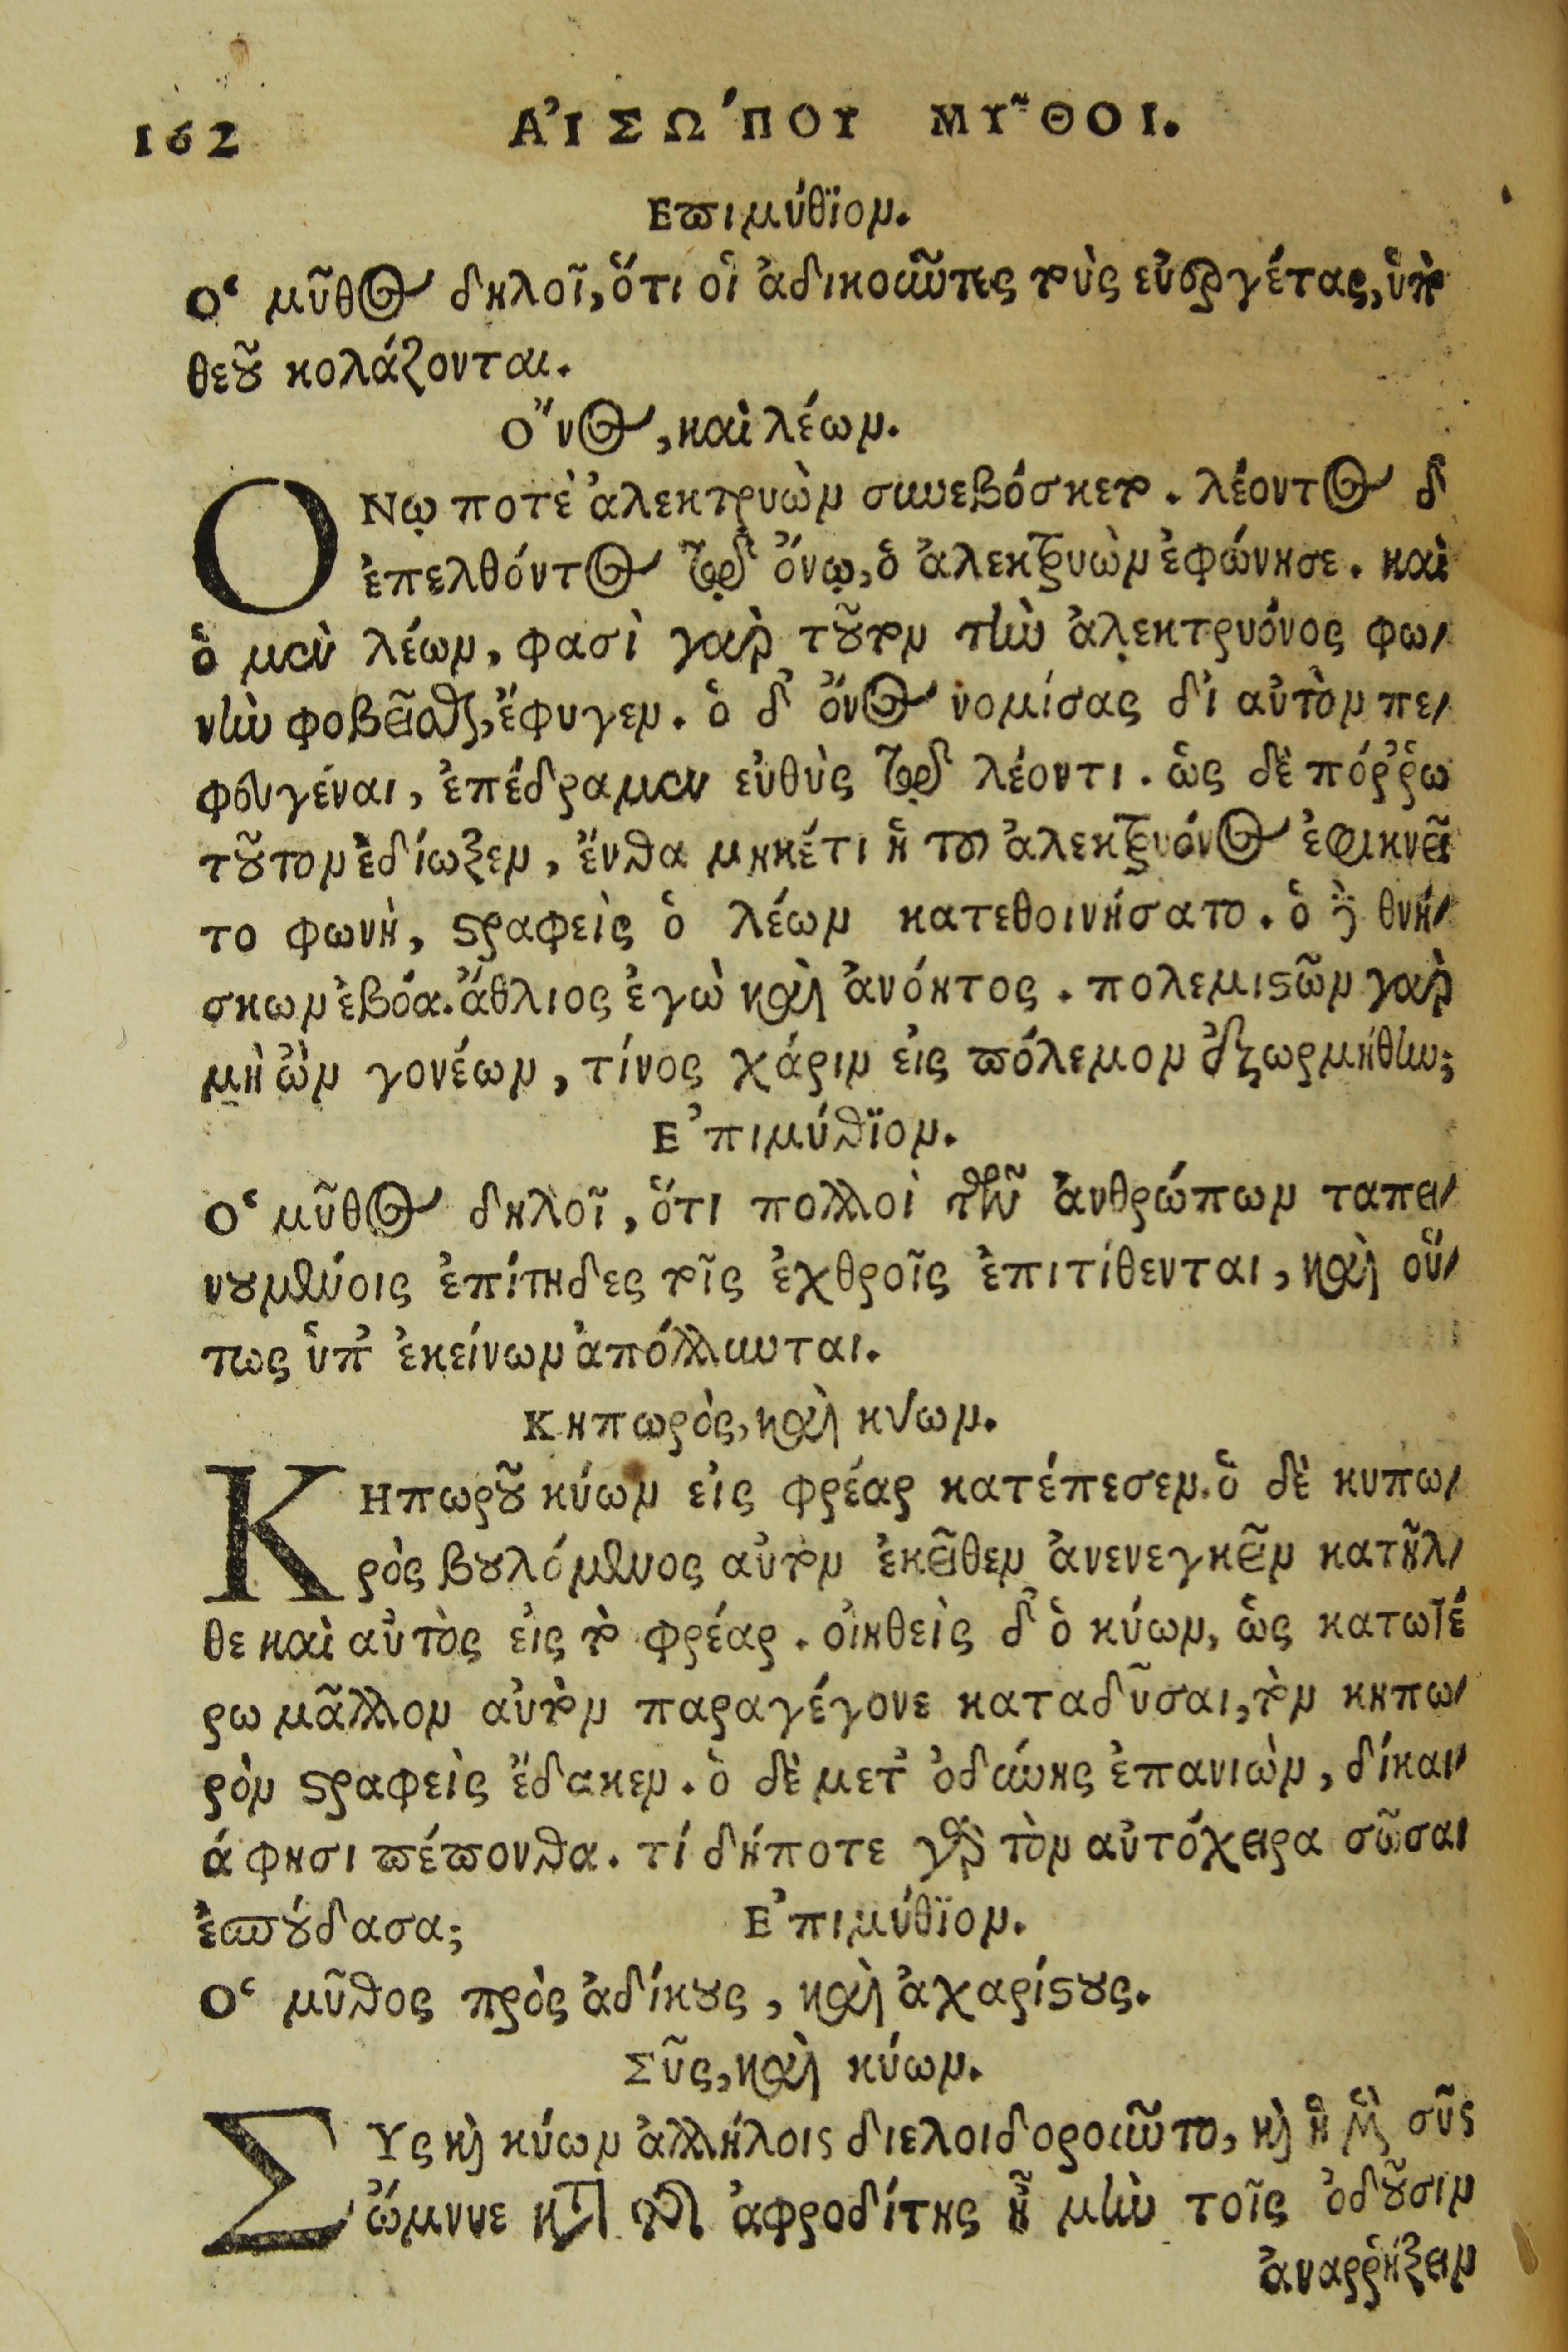 162 ΑἸΣΩ´ΠΟΥ ΜΥ͂ΘΟΙ.
Επιμύθϊον.
Ὁ μῦθος δηλοῖ, ὅτι οἱ ἀδικοῦντες τοὺς εὐεργέτας, ὑπὸ
θεοῦ κολάζονται.
Ὄνος, καὶ λέων.
ΟΝῳ ποτὲ ἀλεκτρυὼν συνεβόσκετο. λέοντος δ᾽
ἐπελθόντος τῷ ὄνῳ, ὁ ἀλεκτρυὼν ἐφώνησε. καὶ
ὁ μὲν λέων, φασὶ γὰρ τοῦτον τὴν ἀλεκτρυόνος φω-
νὴν φοβεῖσθαι, ἔφυγεν. ὁ δ᾽ ὄνος νομίσας δι᾽ αὐτὸν πε-
φευγέναι, ἐπέδραμεν εὐθὺς τῷ λέοντι. ὡς δὲ πόῤῥω
τοῦτον ἐδίωξεν, ἔνθα μηκέτι ἡ τοῦ ἀλεκτρυόνος ἐφικνεῖ
το φωνὴ, στραφεὶς ὁ λέων κατεθοινήσατο. ὁ δὲ θνή-
σκων ἐβόα. ἄθλιος ἐγὼ καὶ ἀνόητος. πολεμιστῶν γὰρ
μὴ ὢν γονέων, τίνος χάριν εἰς πόλεμον ἐξωρμήθην;
Ἐπιμύθϊον.
Ὁ μῦθος δηλοῖ, ὅτι πολλοὶ τῶν ἀνθρώπων ταπει-
νουμένοις ἐπίτηδες τοῖς ἐχθροῖς ἐπιτίθενται, καὶ οὕ-
τως ὑπ᾽ ἐκείνων ἀπόλλυνται.
Κηπωρὸς, καὶ κύων.
ΚΗπωροῦ κύων εἰς φρέαρ κατέπεσεν. ὁ δὲ κυπω-
ρὸς βουλόμενος αὐτὸν ἐκεῖθεν ἀνενεγκεῖν κατῆλ-
θε καὶ αὐτὸς εἰς τὸ φρέαρ. οἰηθεὶς δ᾽ ὁ κύων, ὡς κατωτέ
ρω μᾶλλον αὐτὸν παραγέγονε καταδῦσαι, τὸν κηπω-
ρὸν στραφεὶς ἔδακεν. ὁ δὲ μετ᾽ ὀδύνης ἐπανιὼν, δίκαι-
ά φησι πέπονθα. τί δήποτε γὰρ τὸν αὐτόχειρα σῶσαι
ἐσπούδασα; Ἐπιμύθϊον.
Ὁ μῦθος πρὸς ἀδίκους, καὶ ἀχαρίστους.
Σῦς, καὶ κύων.
ΣΥς καὶ κύων ἀλλήλοις διελοιδοροῦντο, καὶ ἡ μὲν σῦς
ὤμνυε κατὰ τῆς ἀφροδίτης ἦ μὴν τοῖς ὀδοῦσιν
ἀναῤῥήξειν